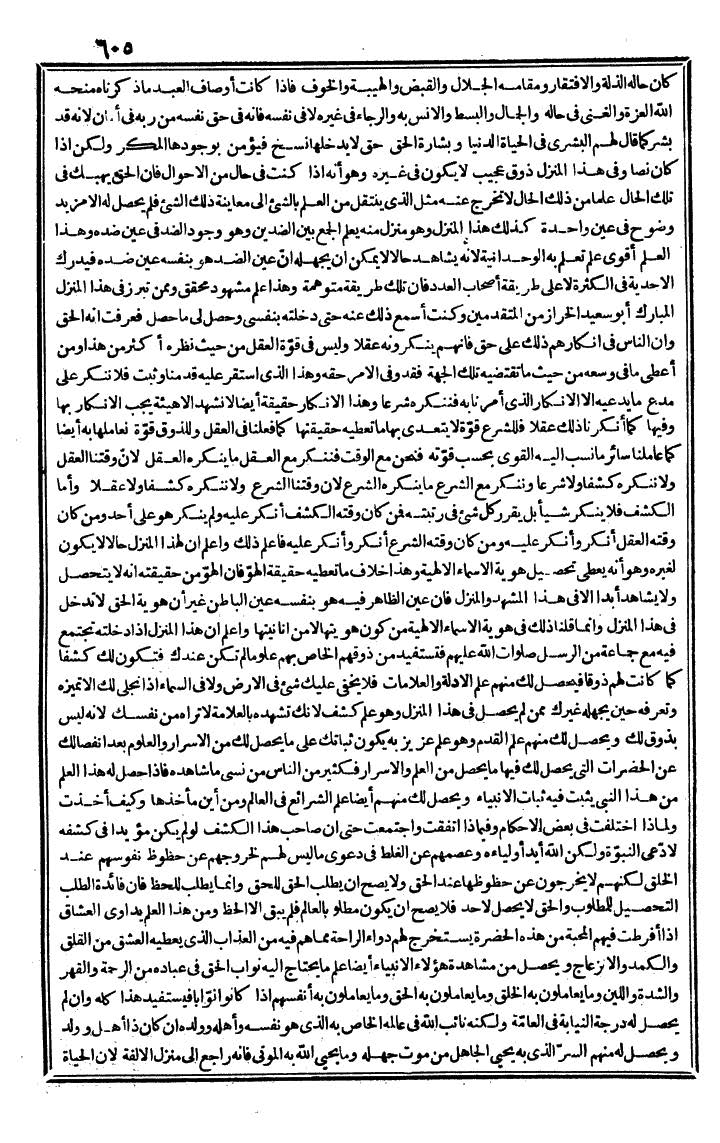 ٦٠٥
كان حاله الذلة والافتقار ومقامه الجلال والقبض والهيبة والخوف فاذا كانت أوصاف العبد ماذكرناه منحه
الله العزة والغنى فى حاله والجمال والبسط والانس به والرجاء فى غيره لا فى نفسه فانه فى حق نفسه من ربه فى أمان لانه قد
بشر كما قال لهم البشرى فى الحياة الدنيا وبشارة الحق حق لا يدخلها نسخ فيؤمن بوجودها المكر ولكن اذا
كان نصا وفى هذا المنزل ذوق عجيب لا يكون فى غيره وهو أنه اذا كنت فى حال من الاحوال فان الحق يهبك فى
تلك الحال علما من ذلك الحال لا تخرج عنه مثل الذى ينتقل من العلم بالشئ الى معاينة ذلك الشئ فلم يحصل له الا مزيد
وضوح فى عين واحدة كذلك هذا المنزل وهو منزل منه يعلم الجمع بين الضدين وهو وجود الضد فى عين ضده وهذا
العلم أقوى علم تعلم به الوحدانية لانه يشاهد حالا لا يمكن ان يجهله انّ عين الضد هو بنفسه عين ضده فيدرك
الاحدية فى الكثرة لا على طريقة أصحاب العدد فان تلك طريقة متوهمة وهذا علم مشهود محقق وممن تبرز فى هذا المنزل
المبارك أبو سعيد الخراز من المتقدمين وكنت أسمع ذلك عنه حتى دخلته بنفسى وحصل لى ما حصل فعرفت انه الحق
وان الناس فى انكارهم ذلك على حق فانهم ينكرونه عقلا وليس فى قوّة العقل من حيث نظره أكثر من هذا ومن
أعطى مافى وسعه من حيث ما تقتضيه تلك الجهة فقد وفى الامر حقه وهذا الذى استقر عليه قدمنا وثبت فلا ننكر على
مدع ما يدعيه الا الانكار الذى أمرنا به فننكره شرعا وهذا الانكار حقيقة أيضا لا نشهد الا هيئة يجب الانكار بها
وفيها كما أنكرنا ذلك عقلا فللشرع قوّة لا يتعدى بها ما تعطيه حقيقتها كما فعلنا فى العقل وللذوق قوّة نعاملها به أيضا
كما عاملنا سائر ما نسب اليه القوى بحسب قوّته فنحن مع الوقت فننكر مع العقل ما ينكره العقل لانّ وقتنا العقل
ولا ننكره كشفا ولا شرعا وننكر مع الشرع ما ينكره الشرع لان وقتنا الشرع ولا ننكره كشفا ولا عقلا وأما
الكشف فلا ينكر شيأ بل يقرر كل شئ فى رتبته فمن كان وقته الكشف أنكر عليه ولم ينكر هو على أحد ومن كان
وقته العقل أنكر وأنكر عليه ومن كان وقته الشرع أنكر وأنكر عليه فاعلم ذلك واعلم ان لهذا المنزل حالا لا يكون
لغيره وهو أنه يعطى تحصيل هوية الاسماء الالهية وهذا خلاف ما تعطيه حقيقة الهوّ فان الهوّ من حقيقته انه لا يتحصل
ولا يشاهد أبدا الا فى هذا المشهد والمنزل فان عين الظاهر فيه هو بنفسه عين الباطن غير أن هوية الحق لا تدخل
فى هذا المنزل وانما قلنا ذلك فى هوية الاسماء الالهية من كون هويتها لا من انانيتها واعلم ان هذا المنزل اذا دخلته تجتمع
فيه مع جماعة من الرسل صلوات الله عليهم فتستفيد من ذوقهم الخاص بهم علوما لم تكن عندك فتكون لك كشفا
كما كانت لهم ذوقا فيحصل لك منهم علم الادلة والعلامات فلا يخفى عليك شئ فى الارض ولا فى السماء اذا تجلى لك الا تميزه
وتعرفه حين يجهله غيرك ممن لم يحصل فى هذا المنزل وهو علم كشف لانك تشهده بالعلامة لا تراه من نفسك لانه ليس
بذوق لك ويحصل لك منهم علم القدم وهو علم عزيز به يكون ثباتك على ما يحصل لك من الاسرار والعلوم بعد انفصالك
عن الحضرات التى يحصل لك فيها ما يحصل من العلم والاسرار فكثير من الناس من نسى ما شاهده فاذا حصل له هذا العلم
من هذا النبى يثبت فيه ثبات الانبياء ويحصل لك منهم أيضا علم الشرائع فى العالم ومن أين مأخذها وكيف أخذت
ولماذا اختلفت فى بعض الاحكام وفيماذا اتفقت واجتمعت حتى ان صاحب هذا الكشف لو لم يكن مؤيدا فى كشفه
لادّعى النبوّة ولكن الله أيد أولياءه وعصمهم عن الغلط فى دعوى ما ليس لهم لخروجهم عن حظوظ نفوسهم عند
الخلق لكنهم لا يخرجون عن حظوظها عند الحق ولا يصح ان يطلب الحق للحق وانما يطلب للحظ فان فائدة الطلب
التحصيل للمطلوب والحق لا يحصل لاحد فلا يصح ان يكون مطلوبا لعالم فلم يبق الا الحظ ومن هذا العلم يداوى العشاق
اذا أفرطت فيهم المحبة من هذه الحضرة يستخرج لهم دواء الراحة مما هم فيه من العذاب الذى يعطيه العشق من القلق
والكمد والانزعاج ويحصل من مشاهدة هؤلاء الانبياء أيضا علم ما يحتاج اليه نواب الحق فى عباده من الرحمة والقهر
والشدة واللين وما يعاملون به الخلق وما يعاملون به الحق وما يعاملون به أنفسهم اذا كانوا نوّابا فيستفيد هذا كله وان لم
يحصل له درجة النيابة فى العامّة ولكنه نائب الله فى عالمه الخاص به الذى هو نفسه وأهله وولده ان كان ذا أهل وولد
ويحصل له منهم السرّ الذى به يحيى الجاهل من موت جهله وما يحيى الله به الموتى فانه راجع الى منزل الالفة لان الحياة